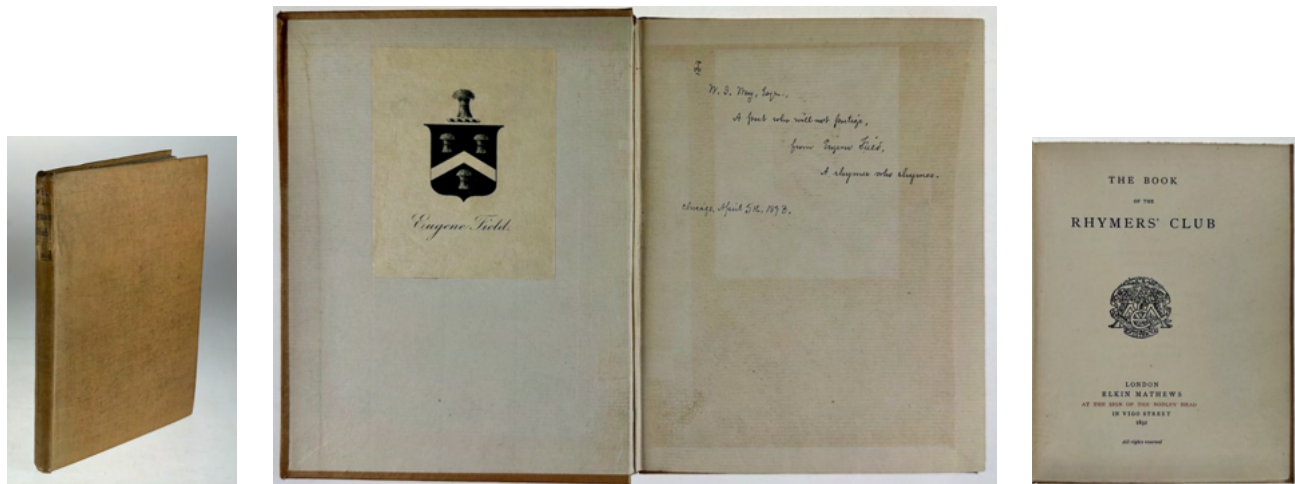 Eugene Field.
W. I. Way, Esqr.,
A front who will not
from Eugene Field,
A rhymer who rhymes.
Chicago, April 5th, 1893.
THE BOOK
OF THE
RHYMERS' CLUB
LONDON
ELKIN MATHEWS
AT THE SIGN OF THE BODLEY HEAD
IN VIGO STREET
1892
All rights reserved